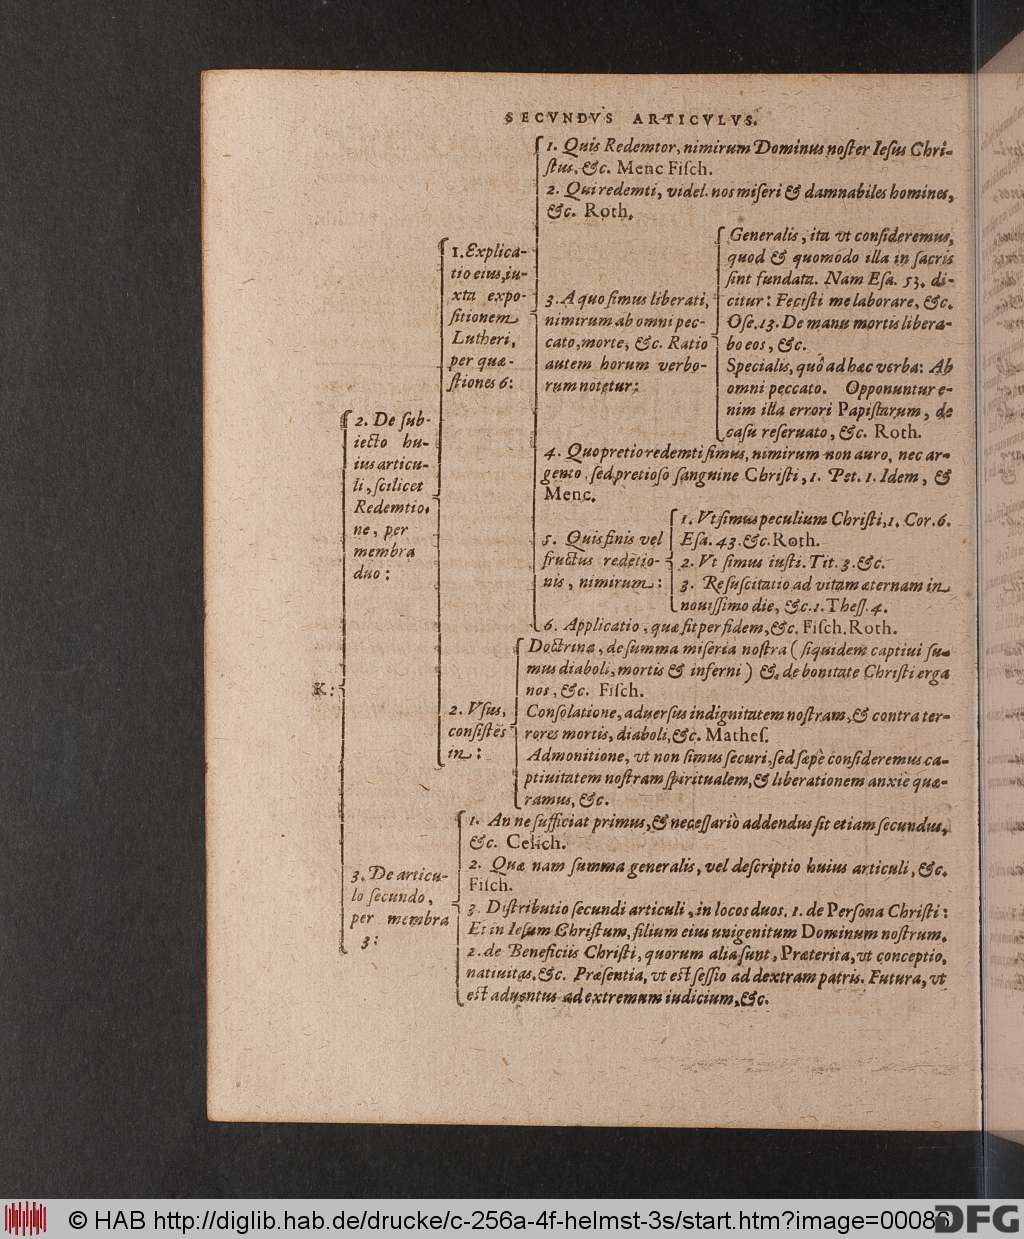 SECVNDVS ARTICVLVS.
K:
2. De sub-
iecto hu-
ius articu-
li, scilicet
Redemtio-
ne, per
membra
duo:
1. Explica-
tio eius, iu-
xta expo-
sitionem
Lutheri,
per quæ-
stiones 6:
1. Quis Redemtor, nimirum Dominus noster Iesus Chri-
stus, &c. Menc Fisch.
2. Qui redemti, videl. nos miseri & damnabiles homines,
&c. Roth.
3. A quo simus liberati,
nimirum ab omni pec-
cato, morte, &c. Ratio
autem horum verbo-
rum notetur:
Generalis, ita vt consideremus,
quod & quomodo illa in sacris
sint fundata. Nam Esa. 53. di-
citur: Fecisti me laborare, &c.
Ose. 13. De manu mortis libera-
bo eos, &c.
Specialis, quô ad hæc verba: Ab
omni peccato. Opponuntur e-
nim illa errori Papistarum, de
casu reseruato, &c. Roth.
4. Quo pretio redemti simus, nimirum non auro, nec ar-
gento, sed pretioso sanguine Christi, 1. Pet. 1. Idem, &
Menc.
5. Quis finis vel
fructus redẽtio-
nis, nimirum:
1. Vt simus peculium Christi, 1. Cor. 6.
Esa. 43. &c. Roth.
2. Vt simus iusti. Tit. 3. &c.
3. Resuscitatio ad vitam æternam in
nouissimo die, &c. 1. Thess. 4.
6. Applicatio, quæ fit per fidem, &c. Fisch. Roth.
2. Vsus,
consistẽs
in:
Doctrinæ, de summa miseria nostra (siquidem captiui su-
mus diaboli, mortis & inferni) &, de bonitate Christi erga
nos, &c. Fisch.
Consolatione, aduersus indignitatem nostram, & contra ter-
rores mortis, diaboli, &c. Mathes.
Admonitione, vt non simus securi, sed sæpè consideremus ca-
ptiuitatem nostram spiritualem, & liberationem anxiè quæ-
ramus, &c.
3. De articu-
lo secundo,
per membra
3:
1. An ne sufficiat primus, & necessariò addendus sit etiam secundus,
&c. Celich.
2. Quæ nam summa generalis, vel descriptio huius articuli, &c.
Fisch.
3. Distributio secundi articuli, in locos duos, 1. de Persona Christi:
Et in Iesum Christum, filium eius unigenitum Dominum nostrum.
2. de Beneficiis Christi, quorum alia sunt, Præterita, vt conceptio,
natiuitas, &c. Præsentia, vt est sessio ad dextram patris. Futura, vt
est aduentus ad extremum iudicium, &c.
© HAB http://diglib.hab.de/drucke/c-256a-4f-helmst-3s/start.htm?image=00086
DFG